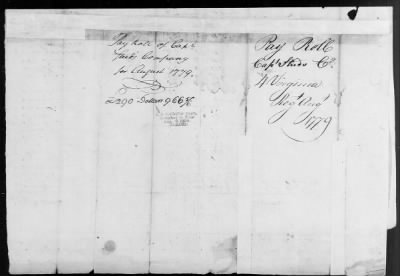 Pay Roll of Capt
Steds Company
for August 1779.
£290 Dollars 966⅔
Pay Roll
Capt Steds Co.
4 Virginia
Regt Augt
1779